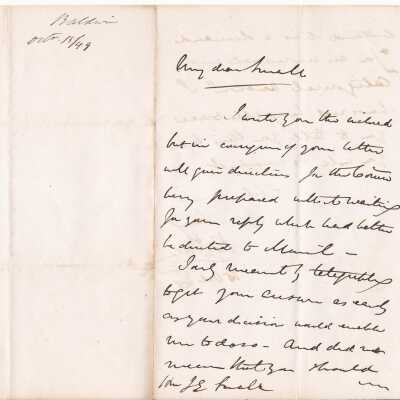 Baldwin
Octr 18/49
My dear Small
I wrote you the enclosed
but in consequence of your letter
will give directions for the
being prepared without waiting
for your reply which had better
be directed to
I only meant by telegraphing
to get your answer as early
as your decision would enable
you to do so - And did not
mean that you should
Hon J E Small